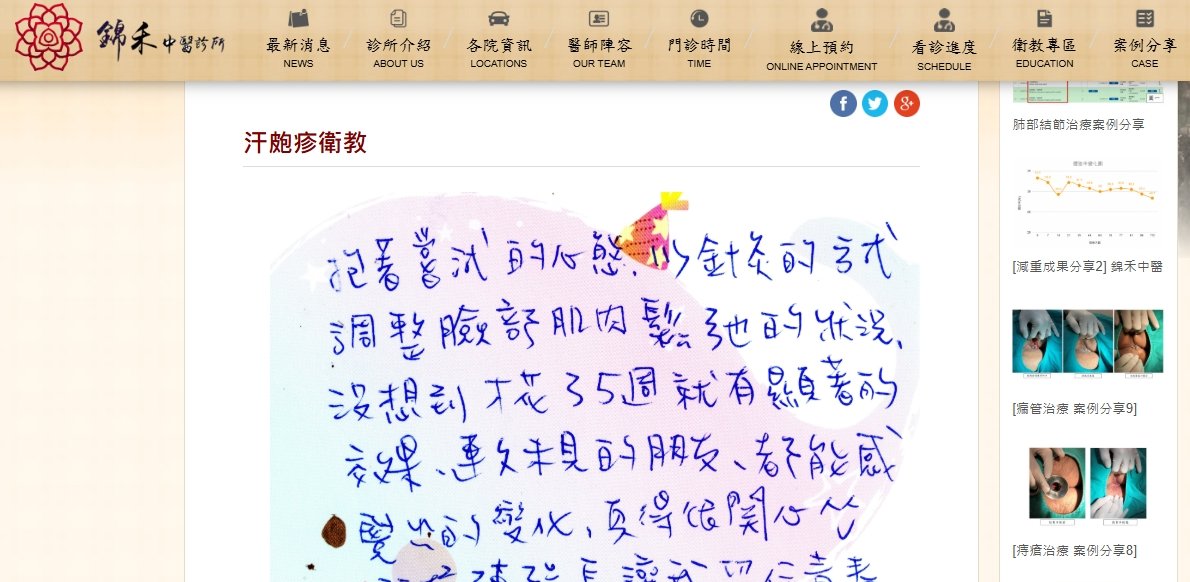 錦禾 中醫診所
最新消息
NEWS
診所介紹
ABOUT US
各院資訊
LOCATIONS
醫師陣容
OUR TEAM
門診時間
TIME
線上預約
ONLINE APPOINTMENT
看診進度
SCHEDULE
衛教專區
EDUCATION
案例分享
CASE
汗皰疹衛教
抱著嘗試的心態、以針灸的方式
調整臉部肌肉鬆弛的狀況、
沒想到才花了5週就有顯著的
效果、連久未見的朋友、都能感
覺出的變化、真得很開心
肺部結節治療案例分享
[減重成果分享2] 錦禾中醫
[瘻管治療 案例分享9]
[痔瘡治療 案例分享8]